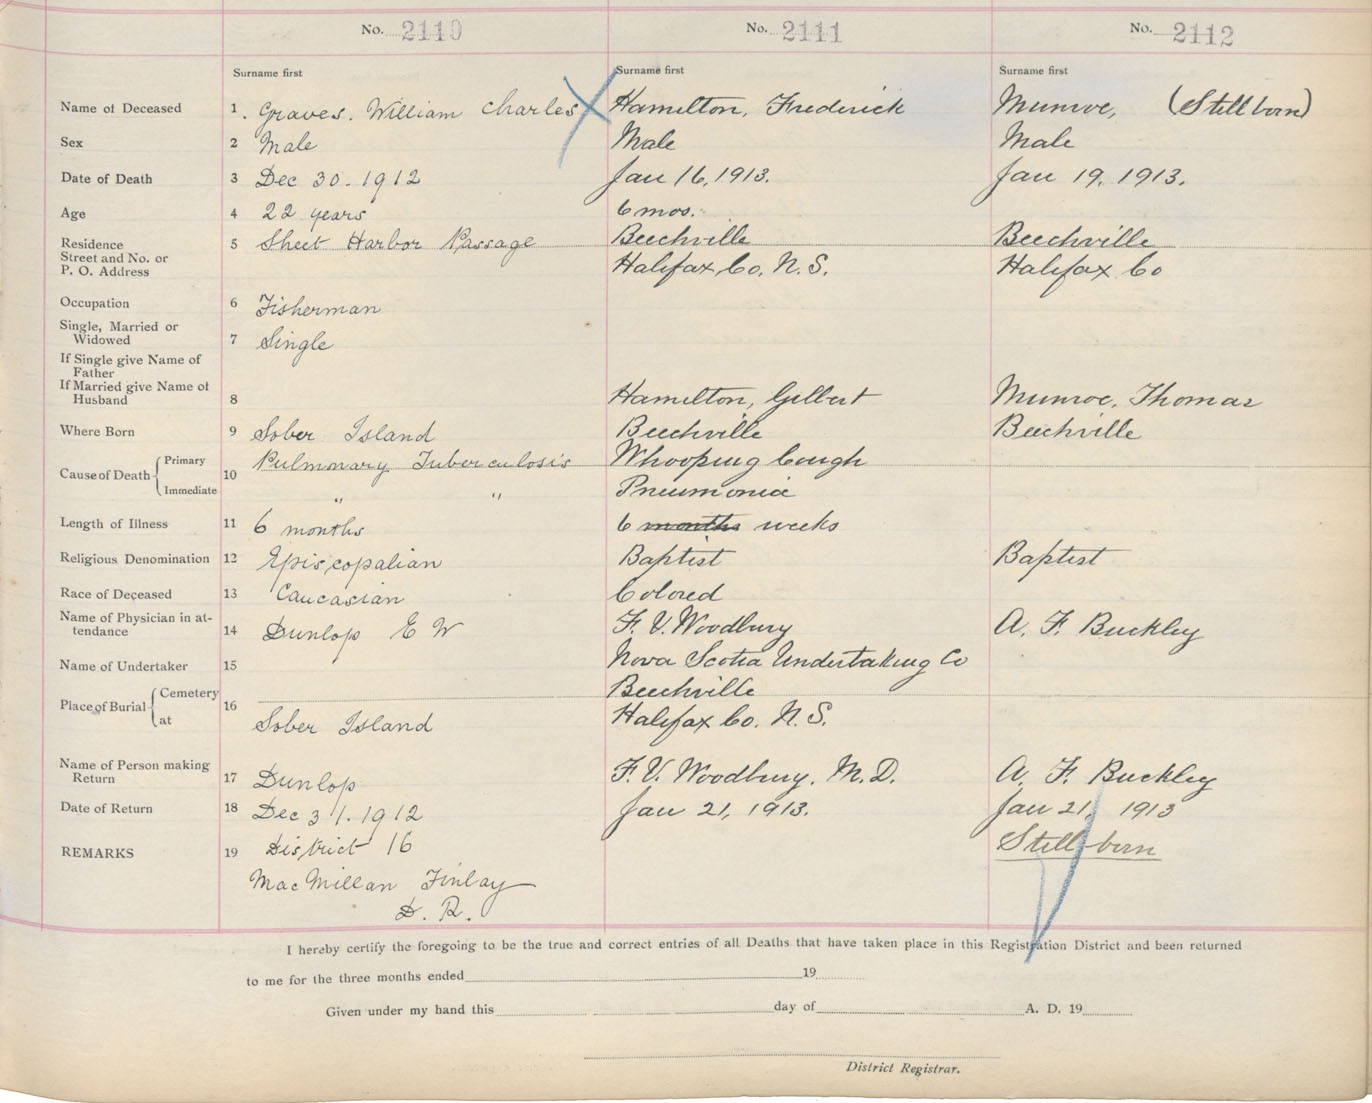 No. 2110 No. 2111 No. 2112
Surname first Surname first Surname first
Name of Deceased 1. Graves. William Charles Hamilton, Frederick Munroe, (Still born)
Sex 2 Male Male Male
Date of Death 3 Dec 30. 1912 Jan 16, 1913. Jan 19, 1913.
Age 4 22 years 6 mos.
Residence 5 Sheet Harbor Passage Beechville Beechville
Street and No. or
P. O. Address Halifax Co. N. S. Halifax Co
Occupation 6 Fisherman
Single, Married or
Widowed 7 Single
If Single give Name of
Father
If Married give Name of
Husband 8 Hamilton, Gilbert Munroe, Thomas
Where Born 9 Sober Island Beechville Beechville
Cause of Death Primary 10 Pulmonary Tuberculosis Whooping Cough
Immediate " " Pneumonia
Length of Illness 11 6 months 6 months weeks
Religious Denomination 12 Episcopalian Baptist Baptist
Race of Deceased 13 Caucasian Colored
Name of Physician in at-
tendance 14 Dunlop E W F. V. Woodbury A. F. Buckley
Name of Undertaker 15 Nova Scotia Undertaking Co
Place of Burial Cemetery 16 Beechville
at Sober Island Halifax Co. N. S.
Name of Person making
Return 17 Dunlop F. V. Woodbury. M. D. A. F. Buckley
Date of Return 18 Dec 31. 1912 Jan 21, 1913. Jan 21, 1913
REMARKS 19 District 16 Still-born
MacMillan Finlay
D. R.
I hereby certify the foregoing to be the true and correct entries of all Deaths that have taken place in this Registration District and been returned
to me for the three months ended 19
Given under my hand this day of A. D. 19
District Registrar.